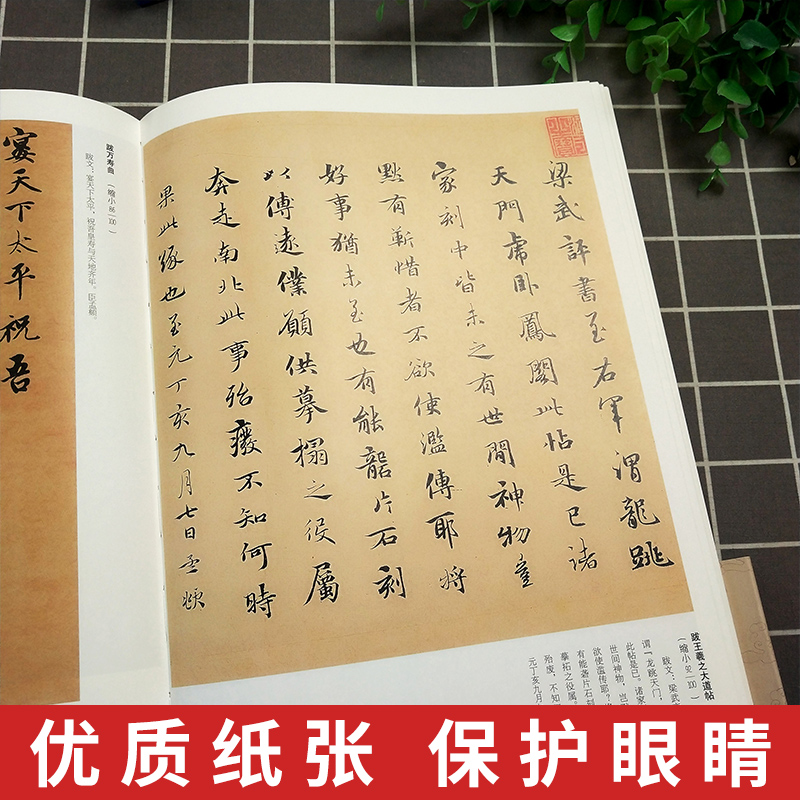 梁武評書至右軍謂龍跳
天門虎卧鳳閣此帖是已諸
家刻中皆未之有世間神物豈
點有靳惜者不欲使濫傳耶將
好事猶未至也有能礱片石刻
以傳遠僕願供摹搨之役屬
奔走南北此事殆廢不知何時
果此緣也至元丁亥九月七日孟頫
跋王羲之大道帖
（缩小92/100）
跋文：梁武
谓「龙跳天门，
此帖是已。诸家
世间神物，岂
欲使滥传耶？
有能砻片石刻
摹拓之役属
殆废，不知
元丁亥九月
跋万寿曲（缩小86/100）
跋文：宴天下太平，祝吾皇寿与天地齐年。臣孟頫。
宴天下太平祝吾
优质纸张 保护眼睛